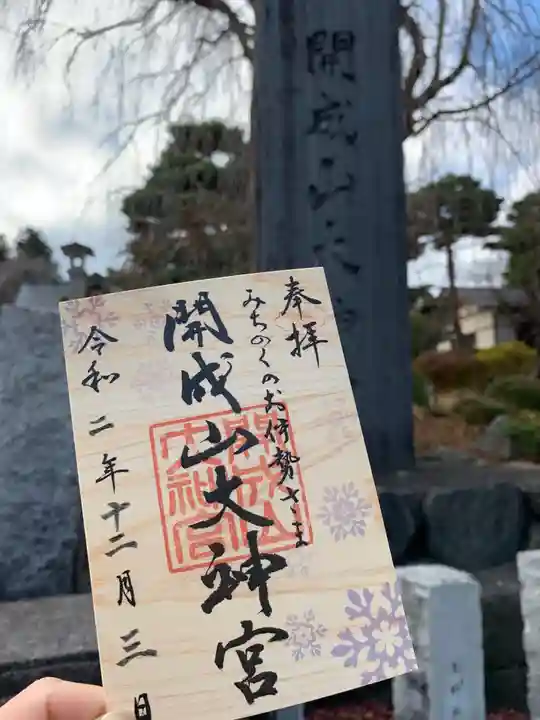 開成山大
奉拝
みちのくのお伊勢さま
開成山大神宮
令和二年十二月三日